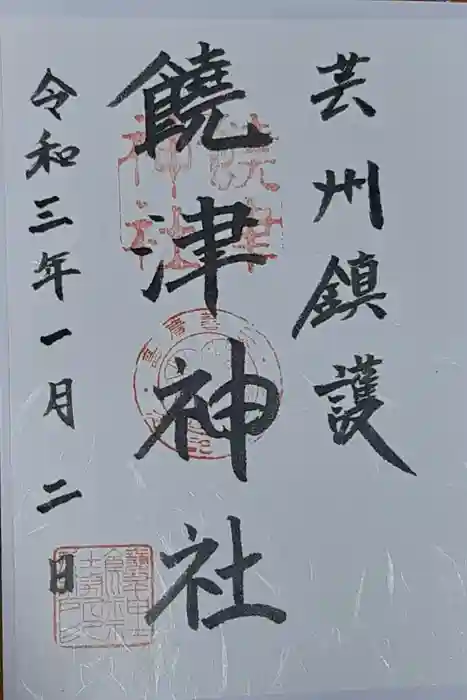 芸州鎮護
饒津神社
令和三年一月二日